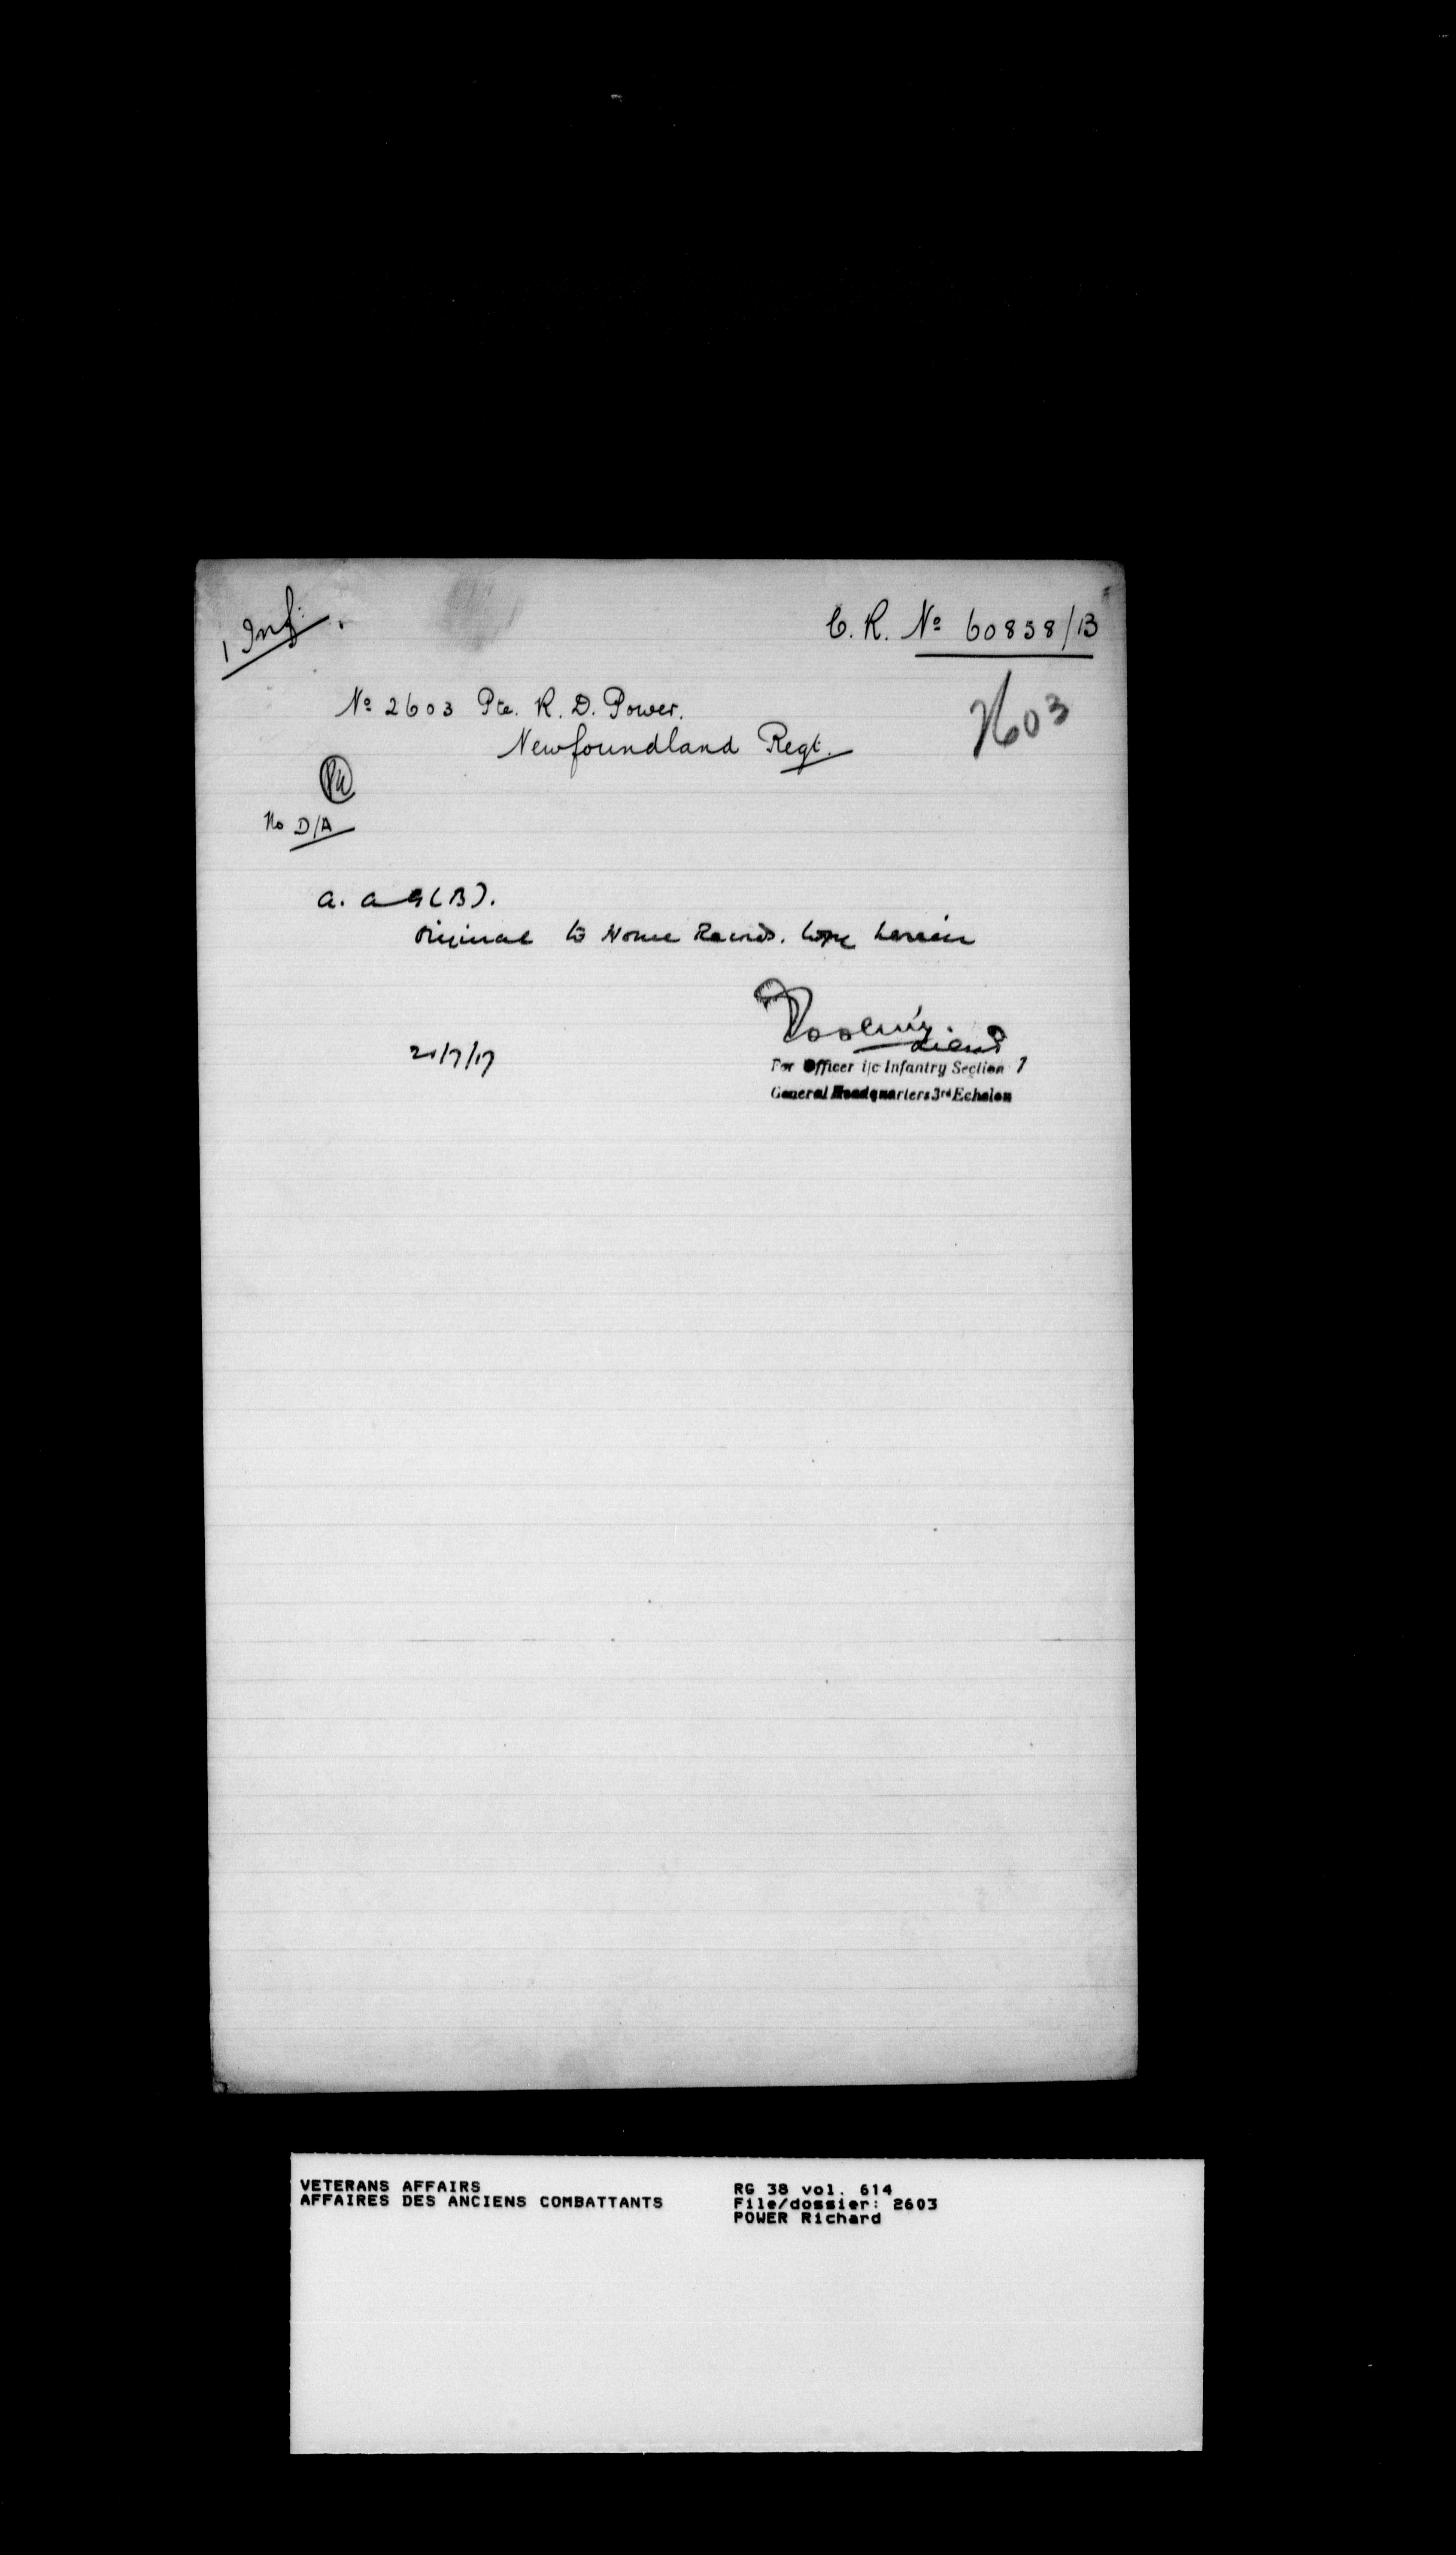 1 Inf.
C. R. Nº 60838/B
Nº 2603 Pte. R. D. Power.
2603
Newfoundland Regt.
No D/A
A. A G (B).
Original to Home Records. Copy herein
Lieut
21/7/17
For Officer i/c Infantry Section 7
General Headquarters 3rd Echelon
VETERANS AFFAIRS
AFFAIRES DES ANCIENS COMBATTANTS
RG 38 vol. 614
File/dossier: 2603
POWER Richard